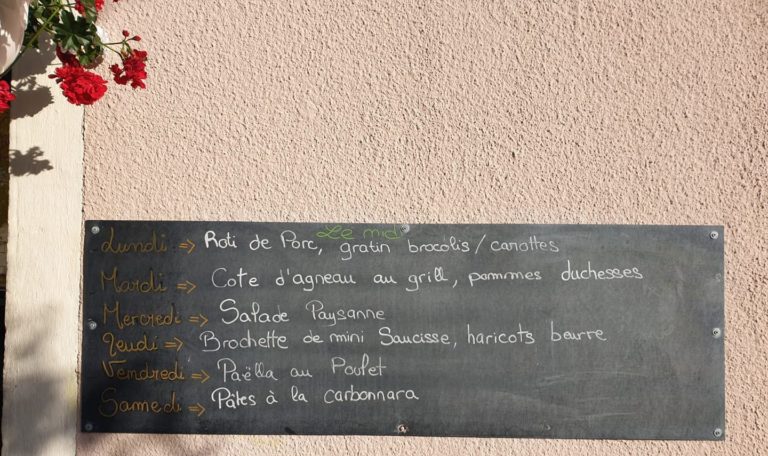 Le midi
Lundi => Roti de Porc, gratin brocolis / carottes
Mardi => Cote d'agneau au grill, pommes duchesses
Mercredi => Salade Paysanne
Jeudi => Brochette de mini Saucisse, haricots beurre
Vendredi => Paëlla au Poulet
Samedi => Pâtes à la carbonnara